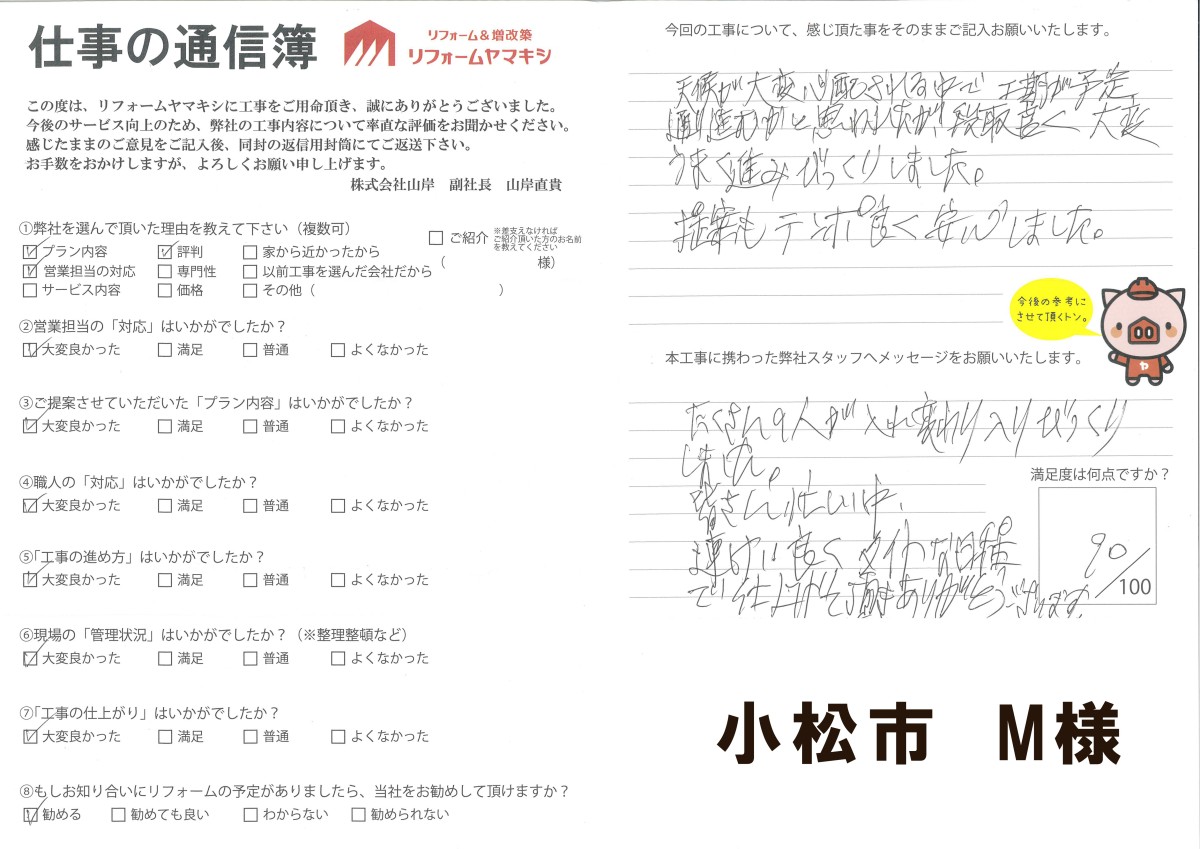 仕事の通信簿
リフォーム&増改築
リフォームヤマキシ
この度は、リフォームヤマキシに工事をご用命頂き、誠にありがとうございました。
今後のサービス向上のため、弊社の工事内容について率直な評価をお聞かせください。
感じたままのご意見をご記入後、同封の返信用封筒にてご返送下さい。
お手数をおかけしますが、よろしくお願い申し上げます。
株式会社山岸 副社長 山岸直貴
①弊社を選んで頂いた理由を教えて下さい（複数可）
☑プラン内容 ☑評判 □家から近かったから
☑営業担当の対応 □専門性 □以前工事を選んだ会社だから
□サービス内容 □価格 □その他（ ）
□ご紹介 ※差支えなければ
ご紹介頂いた方のお名前
を教えてください
（ 様）
②営業担当の「対応」はいかがでしたか？
☑大変良かった □満足 □普通 □よくなかった
③ご提案させていただいた「プラン内容」はいかがでしたか？
☑大変良かった □満足 □普通 □よくなかった
④職人の「対応」はいかがでしたか？
☑大変良かった □満足 □普通 □よくなかった
⑤「工事の進め方」はいかがでしたか？
☑大変良かった □満足 □普通 □よくなかった
⑥現場の「管理状況」はいかがでしたか？（※整理整頓など）
☑大変良かった □満足 □普通 □よくなかった
⑦「工事の仕上がり」はいかがでしたか？
☑大変良かった □満足 □普通 □よくなかった
⑧もしお知り合いにリフォームの予定がありましたら、当社をお勧めして頂けますか？
☑勧める □勧めても良い □わからない □勧められない
今回の工事について、感じ頂た事をそのままご記入お願いいたします。
天候が大変心配される中で工期が予定
通り進むかと思われたが、段取良く大変
うまく進みびっくりしました。
提案もテンポ良く安心しました。
今後の参考に
させて頂くトン。
ヤ
本工事に携わった弊社スタッフへメッセージをお願いいたします。
たくさんの人が入れ変わり入りびっくり
しました。
皆さん忙しい中、
良く タイトな日程
で仕上げて頂きありがとうございます
満足度は何点ですか？
90/100
小松市 M様